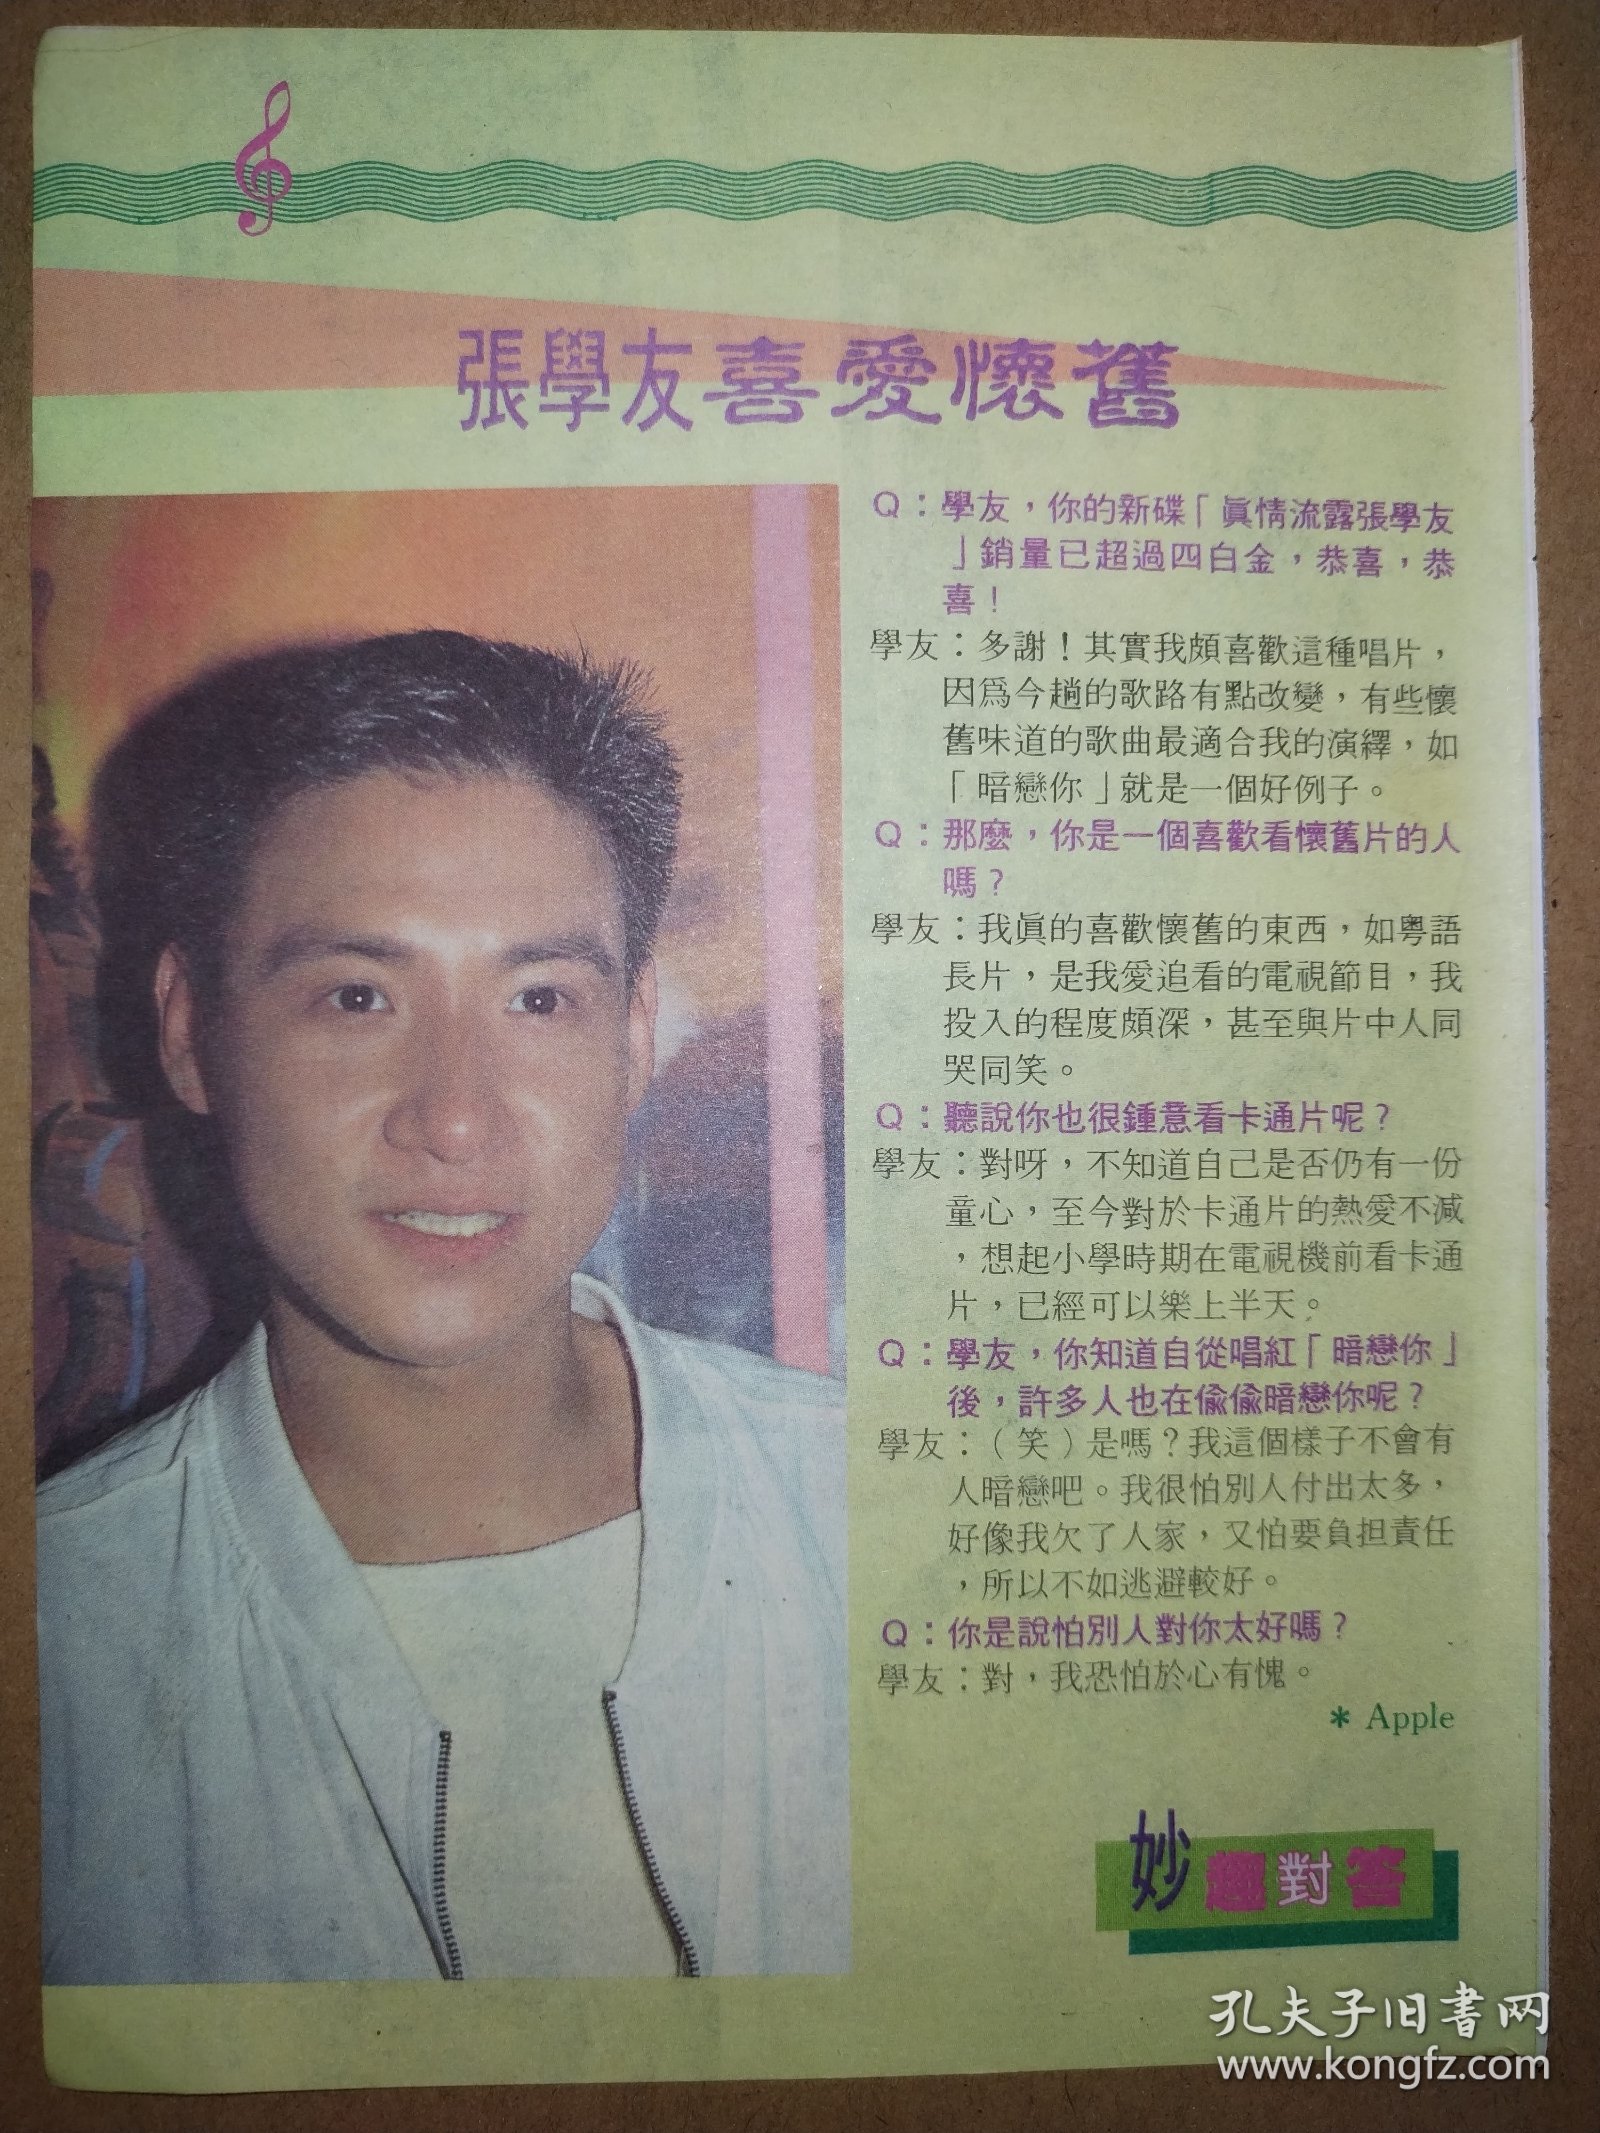 張學友喜愛懷舊
Q：學友，你的新碟「眞情流露張學友
」銷量已超過四白金，恭喜，恭
喜！
學友：多謝！其實我頗喜歡這種唱片，
因爲今趟的歌路有點改變，有些懷
舊味道的歌曲最適合我的演繹，如
「暗戀你」就是一個好例子。
Q：那麼，你是一個喜歡看懷舊片的人
嗎？
學友：我眞的喜歡懷舊的東西，如粵語
長片，是我愛追看的電視節目，我
投入的程度頗深，甚至與片中人同
哭同笑。
Q：聽說你也很鍾意看卡通片呢？
學友：對呀，不知道自己是否仍有一份
童心，至今對於卡通片的熱愛不減
，想起小學時期在電視機前看卡通
片，已經可以樂上半天。
Q：學友，你知道自從唱紅「暗戀你」
後，許多人也在偷偷暗戀你呢？
學友：（笑）是嗎？我這個樣子不會有
人暗戀吧。我很怕別人付出太多，
好像我欠了人家，又怕要負担責任
，所以不如逃避較好。
Q：你是說怕別人對你太好嗎？
學友：對，我恐怕於心有愧。
＊ Apple
妙趣對答
孔夫子旧书网
www.kongfz.com